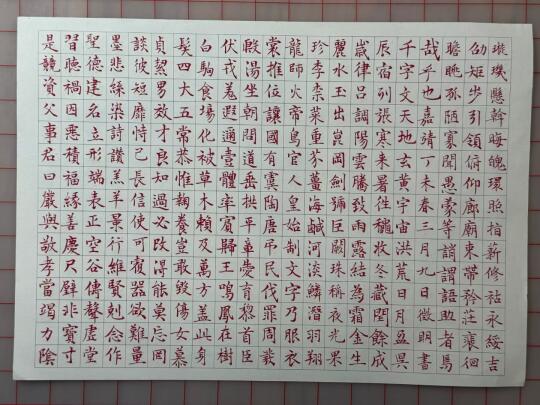 璇璣懸斡晦魄環照指薪修祜永綏吉
劭矩步引領俯仰廊廟束帶矜莊裴徊
瞻眺孤陋寡聞愚蒙等誚謂語助者焉
哉乎也嘉靖丁未春三月九日徵明書
千字文天地玄黃宇宙洪荒日月盈昃
辰宿列張寒來暑往秋收冬藏閏餘成
歲律呂調陽雲騰致雨露結為霜金生
麗水玉出崑岡劍號巨闕珠稱夜光果
珍李柰菜重芥薑海鹹河淡鱗潛羽翔
龍師火帝鳥官人皇始制文字乃服衣
裳推位讓國有虞陶唐弔民伐罪周發
殷湯坐朝問道垂拱平章愛育黎首臣
伏戎羌遐邇壹體率賓歸王鳴鳳在樹
白駒食場化被草木賴及萬方蓋此身
髮四大五常恭惟鞠養豈敢毀傷女慕
貞男效才良知過必改得能莫忘罔
談彼短靡恃己長信使可覆器欲難量
墨悲絲染詩讚羔羊景行維賢剋念作
聖德建名立形端表正空谷傳聲虛堂
習聽禍因惡積福緣善慶尺璧非寶寸
是競資父事君曰嚴與敬孝當竭力陰